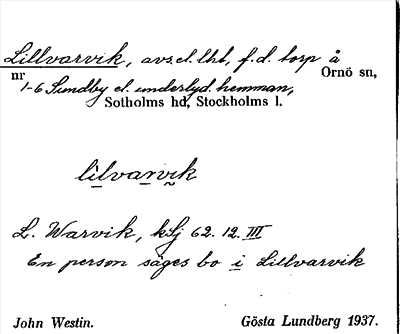 Lillvarvik, avs.el.lht, f.d. torp å
nr Ornö sn,
1-6 Sundby el. underlyd. hemman,
Sotholms hd, Stockholms l.
lilvarvik
L. Warvik, kSj 62. 12. III
En person säges bo i Lillvarvik
John Westin. Gösta Lundberg 1937.